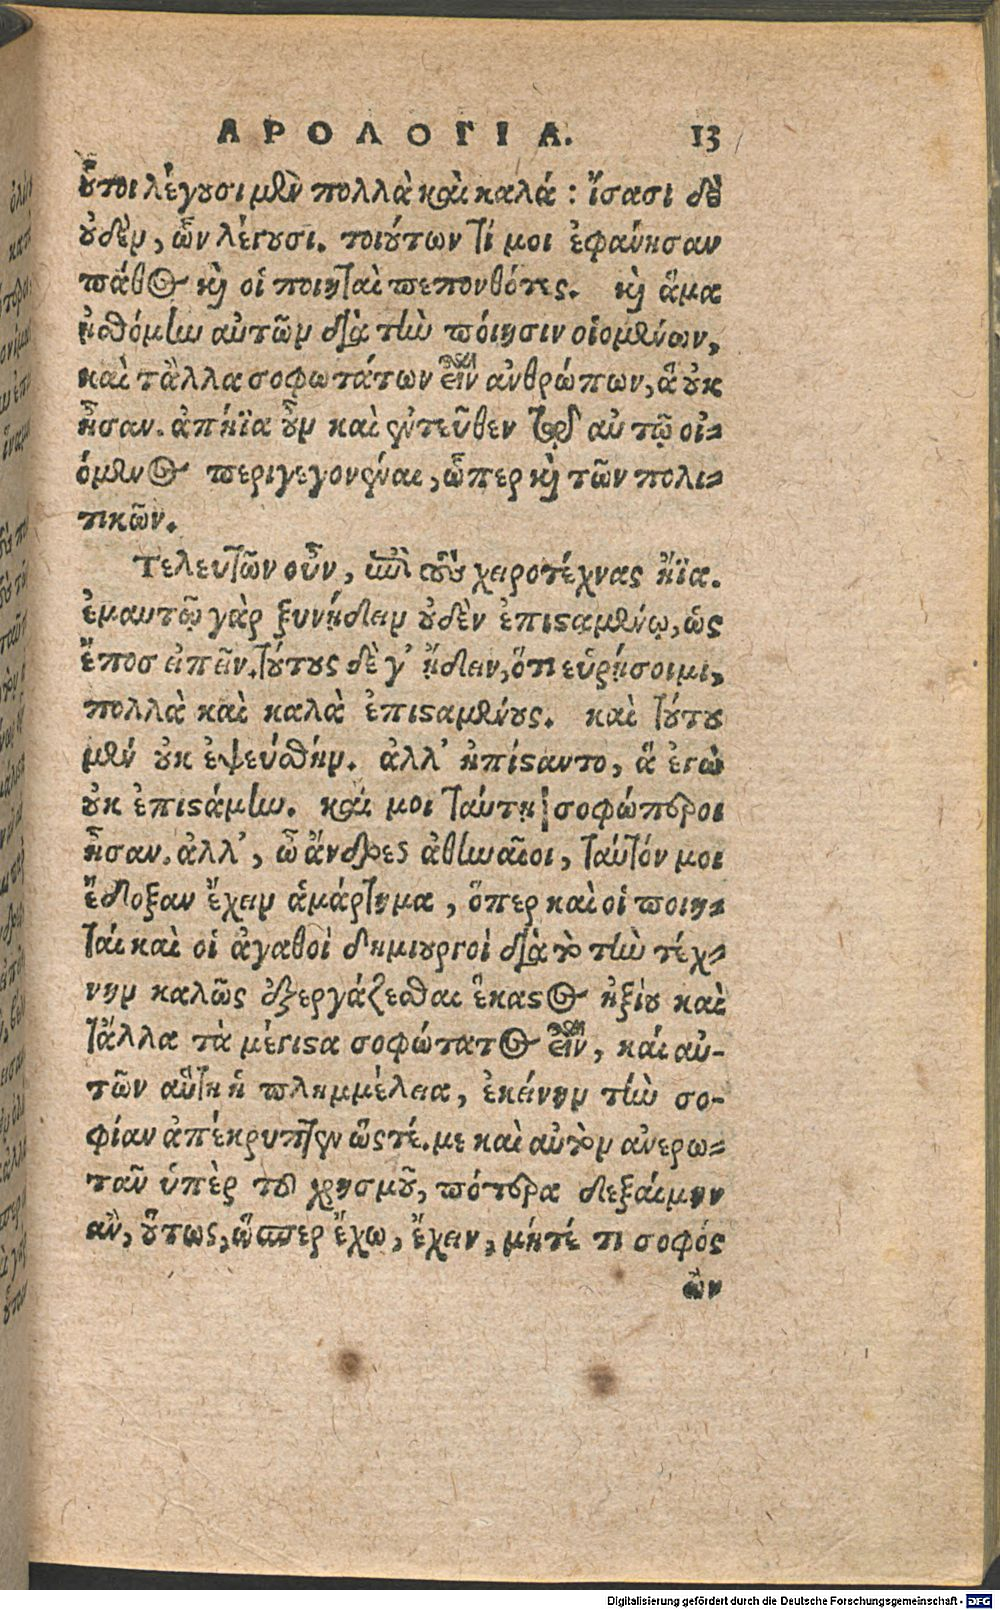 ΑΡΟΛΟΓΙΑ. 13
οὗτοι λέγουσι μὲν πολλὰ καὶ καλά : ἴσασι δὲ
οὐδὲν, ὧν λέγουσι. τοιοῦτων τί μοι ἐφάνησαν
πάθος καὶ οἱ ποιηταὶ πεπονθότες. καὶ ἅμα
ᾐσθόμην αὐτῶν διὰ τὴν πόιησιν οἰομένων,
καὶ τἆλλα σοφωτάτων εἶναι ἀνθρώπων, ἃ οὐκ
ἦσαν. ἀπῄϊα οὖν καὶ ἐντεῦθεν τῷ αὐτῷ οἰ-
όμενος περιγεγονέναι, ᾧπερ καὶ τῶν πολι-
τικῶν.
Τελευτῶν οὖν, ἐπὶ τοὺς χειροτέχνας ᾔϊα.
ἐμαυτῷ γὰρ ξυνῄδειν οὐδὲν ἐπισταμένῳ, ὡς
ἔποσ εἰπεῖν. τούτους δὲ γ' ᾔδειν, ὅτι εὑρήσοιμι,
πολλὰ καὶ καλὰ ἐπισταμένους. καὶ τούτου
μὲν οὐκ ἐψεύσθην. ἀλλ' ἠπίσταντο, ἃ ἐγὼ
οὐκ ἐπιστάμην. καί μοι ταύτῃ σοφώτεροι
ἦσαν. ἀλλ', ὦ ἄνδρες ἀθηναῖοι, ταὐτόν μοι
ἔδοξαν ἔχειν ἁμάρτημα, ὅπερ καὶ οἱ ποιη-
ταὶ καὶ οἱ ἀγαθοὶ δημιουργοὶ διὰ τὸ τὴν τέχ-
νην καλῶς ἐξεργάζεσθαι ἕκαστος ἠξίου καὶ
τἄλλα τὰ μέγιστα σοφώτατος εἶναι, καὶ αὐ-
τῶν αὕτη ἡ πλημμέλεια, ἐκείνην τὴν σο-
φίαν ἀπέκρυπτεν ὥς τέ. με καὶ αὐτὸν ἀνερω-
τᾶν ὑπὲρ τοῦ χρησμοῦ, πότερα δεξαίμην
ἂν, οὕτως, ὥσπερ ἔχω, ἔχειν, μήτέ τι σοφός
ὢν
Digitalisierung gefördert durch die Deutsche Forschungsgemeinschaft - DFG